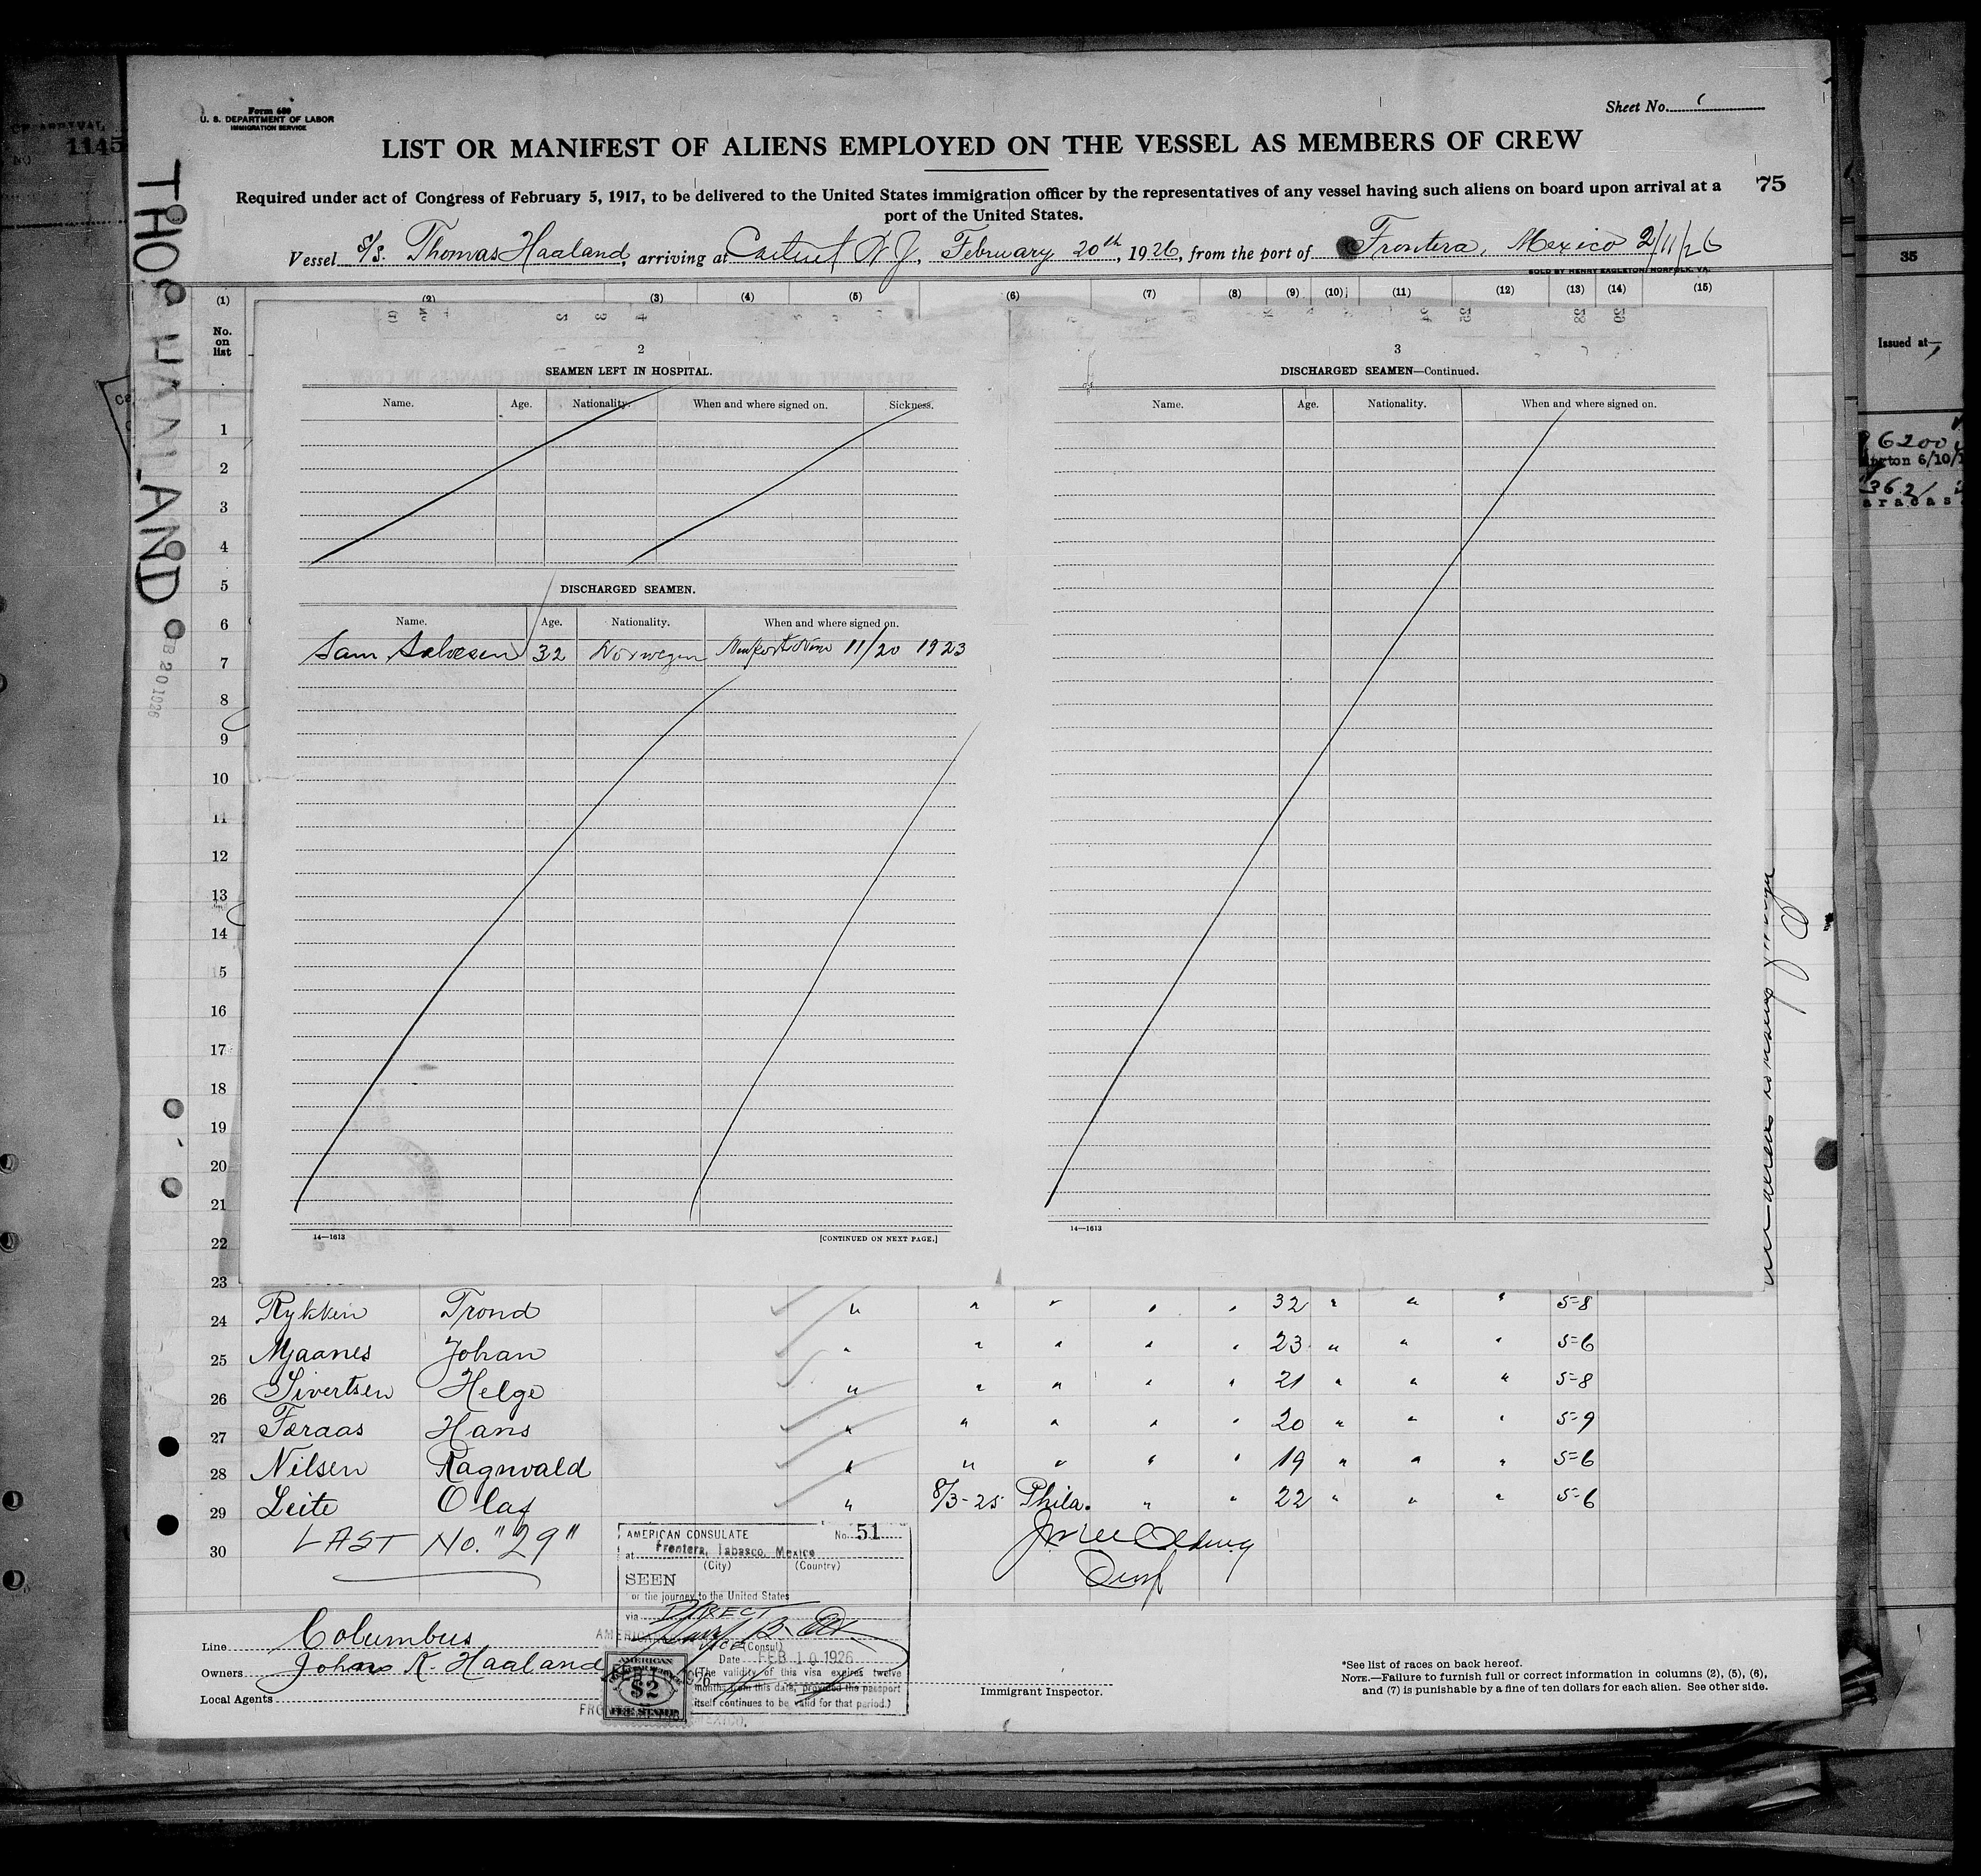 Form 689
U. S. DEPARTMENT OF LABOR
IMMIGRATION SERVICE
Sheet No.
LIST OR MANIFEST OF ALIENS EMPLOYED ON THE VESSEL AS MEMBERS OF CREW
Required under act of Congress of February 5, 1917, to be delivered to the United States immigration officer by the representatives of any vessel having such aliens on board upon arrival at a
port of the United States.
75
Vessel S/S. Thomas Haaland, arriving at Carteret N.J., February 20th, 1926, from the port of Frontera, Mexico 2/11/26
SOLD BY HENRY EAGLETON, NORFOLK, VA.
(1) (2) (3) (4) (5) (6) (7) (8) (9) (10) (11) (12) (13) (14) (15)
No. on list
2
SEAMEN LEFT IN HOSPITAL.
Name. Age. Nationality. When and where signed on. Sickness.
DISCHARGED SEAMEN.
Name. Age. Nationality. When and where signed on.
Sam Salvesen 32 Norwegen Newport News 11/20 1923
14—1613 [CONTINUED ON NEXT PAGE.]
3
DISCHARGED SEAMEN—Continued.
Name. Age. Nationality. When and where signed on.
14—1613
1
2
3
4
5
6
7
8
9
10
11
12
13
14
15
16
17
18
19
20
21
22
23
24 Rykken Trond " " " " " 32 " " " 5-8
25 Mjaanes Johan " " " " " 23 " " " 5-6
26 Sivertsen Helge " " " " " 21 " " " 5-8
27 Færaas Hans " " " " " 20 " " " 5-9
28 Nilsen Ragnvald " " " " " 19 " " " 5-6
29 Leite Olaf " 8/3-25 Phila. " " 22 " " " 5-6
30 LAST No. "29"
AMERICAN CONSULATE No. 51
at Frontera, Tabasco, Mexico
(City) (Country)
SEEN
for the journey to the United States
via DIRECT
VICE (Consul)
Date FEB 10 1926
(The validity of this visa expires twelve
months from this date, provided the passport
itself continues to be valid for that period.)
AMERICAN
$2
FEE STAMP
Line Columbus
Owners Johns K. Haaland
Local Agents
Immigrant Inspector.
*See list of races on back hereof.
NOTE.—Failure to furnish full or correct information in columns (2), (5), (6),
and (7) is punishable by a fine of ten dollars for each alien. See other side.
THOS HAALAND
FEB 20 1926
1145
35
Issued at